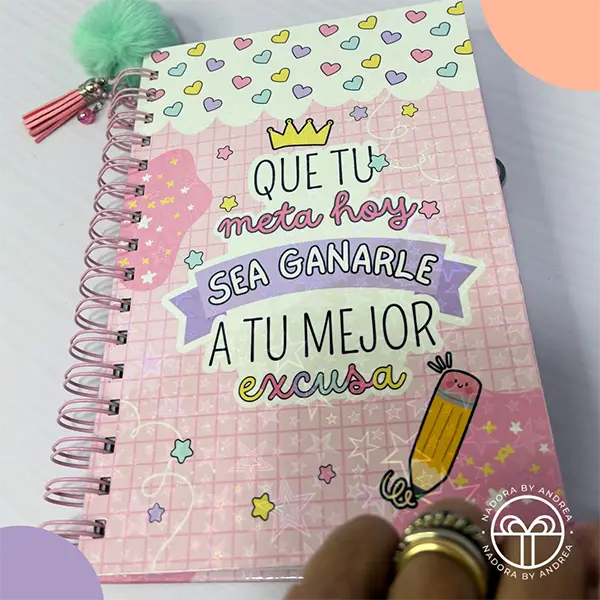 QUE TU
meta hoy
SEA GANARLE
A TU MEJOR
excusa
NADORA BY ANDREA
NADORA BY ANDREA